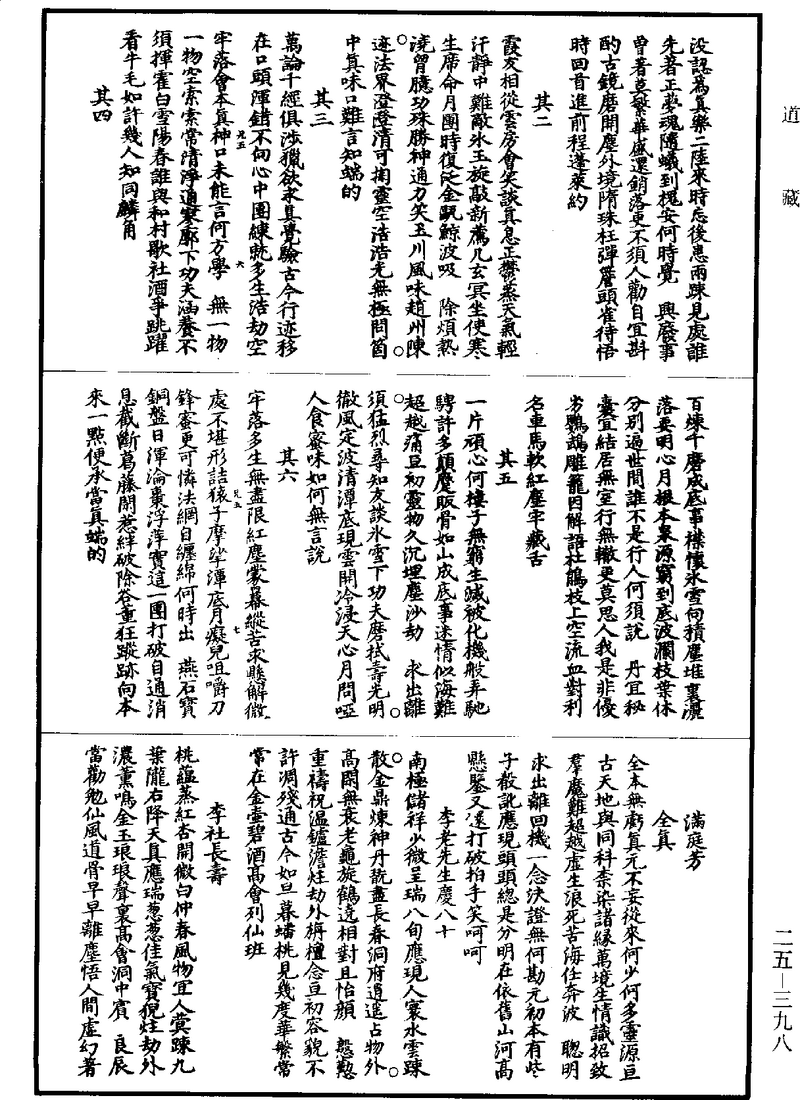 道藏
没認為真樂二陸來時忘後患雨踈見處誰
先著正夢魂隨蟻到槐安何時覺　興廢事
曾著莫繁華盛還銷落更不須人勸自宜斟
酌古鏡磨開塵外境隋珠枉彈簷頭雀待悟
時回首進前程蓬萊約
其二
霞友相從雲房會笑談真息正鬱蒸天氣輕
汗靜中難敵氷玉旋敲新薦几玄冥坐使寒
生席命月團時復泛金甌鯨波吸　除煩熱
澆胷臆功殊勝神通力笑玉川風味趙州陳
迹法界澄澄清可掬靈空浩浩光無極問箇
中真味口難言知端的
其三
萬論千經俱涉獵欲求真覺驗古今行迹移
在口頭渾錯不向心中團練就多生浩劫空
牢落會本真神口未能言何方學　無一物
一物空索索常清淨通寥廓下功夫涵養不
須揮霍白雪陽春誰與和村歌社酒爭跳躍
看牛毛如許幾人知同麟角
其四
百煉千磨成底事襟懷氷雪向積塵堆裏灑
落要明心月根本衆源窮到底波瀾枝葉休
分別過世間誰不是行人何須說　丹宜秘
囊宜結居無室行無轍更莫思人我是非優
劣鸚鵡雕籠因解語杜鵑枝上空流血對利
名車馬軟紅塵牢藏舌
其五
一片頑心何樓子無窮生滅被化機般弄馳
騁許多顛蹷販骨如山成底事迷情似海難
超越痛亘初靈物久沉埋塵沙劫　求出離
須猛烈尋知友談氷雪下功夫磨拭壽光明
徹風定波清潭底現雲開冷浸天心月問啞
人食蜜味如何無言說
其六
牢落多生無盡限紅塵蒙暮縱苦求懸解微
處不堪形詰猿子摩挲渾底月癡兒咀嚼刀
鋒蜜更可憐法網自纏綿何時出　燕石寶
銅盤日渾淪棗浮萍實這一團打破自通消
息截斷葛藤閑惹絆破除谷董狂蹤跡向本
來一點便承當真端的
滿庭芳
全真
全本無虧真元不妄從來何少何多靈源亘
古天地與同科柰染諸緣萬境生情識招致
羣魔難超越虛生浪死苦海任奔波　聰明
求出離回機一念決證無何勘元初本有些
子殽訛應現頭頭總是分明在依舊山河高
懸鑒又還打破拍手笑呵呵
李老先生慶八十
南極儲祥少微呈瑞八旬應現人寰水雲踈
散金鼎煉神丹珗盡長春洞府逍遥占物外
高閑無衰老龜旋鶴遶相對且怡顏　慇懃
重禱祝温鑪澹炷劫外栴檀念亘初容貌不
許凋殘通古今如旦暮蟠桃見幾度華繁常
常在金臺碧酒高會列仙班
李社長壽
桃蘊蒸紅杏開微白仲春風物宜人蓂踈九
葉隴右降天真應瑞葱葱佳氣寶猊炷劫外
濃薰鳴金玉琅琅聲裏高會洞中賓　良辰
當勸勉仙風道骨早早離塵悟人間虛幻著
二五—三九八